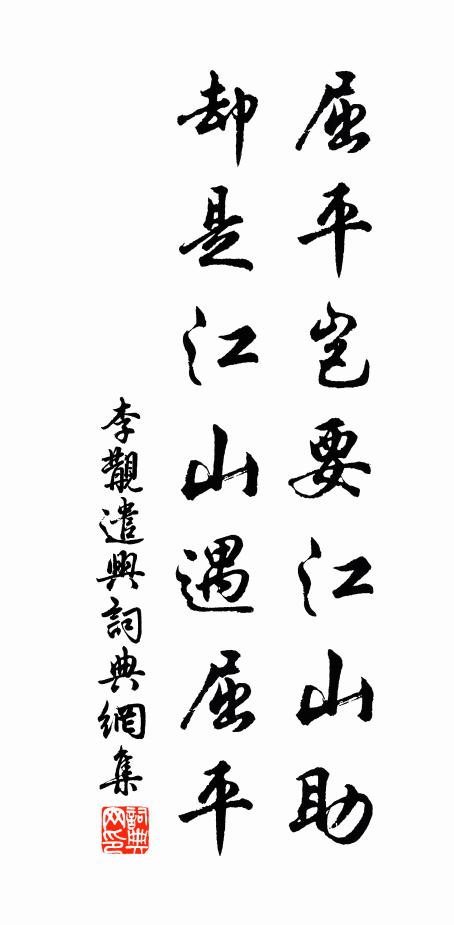 屈平豈要江山助
却是江山遇屈平
李觀遣興詞典網集
詞典網印